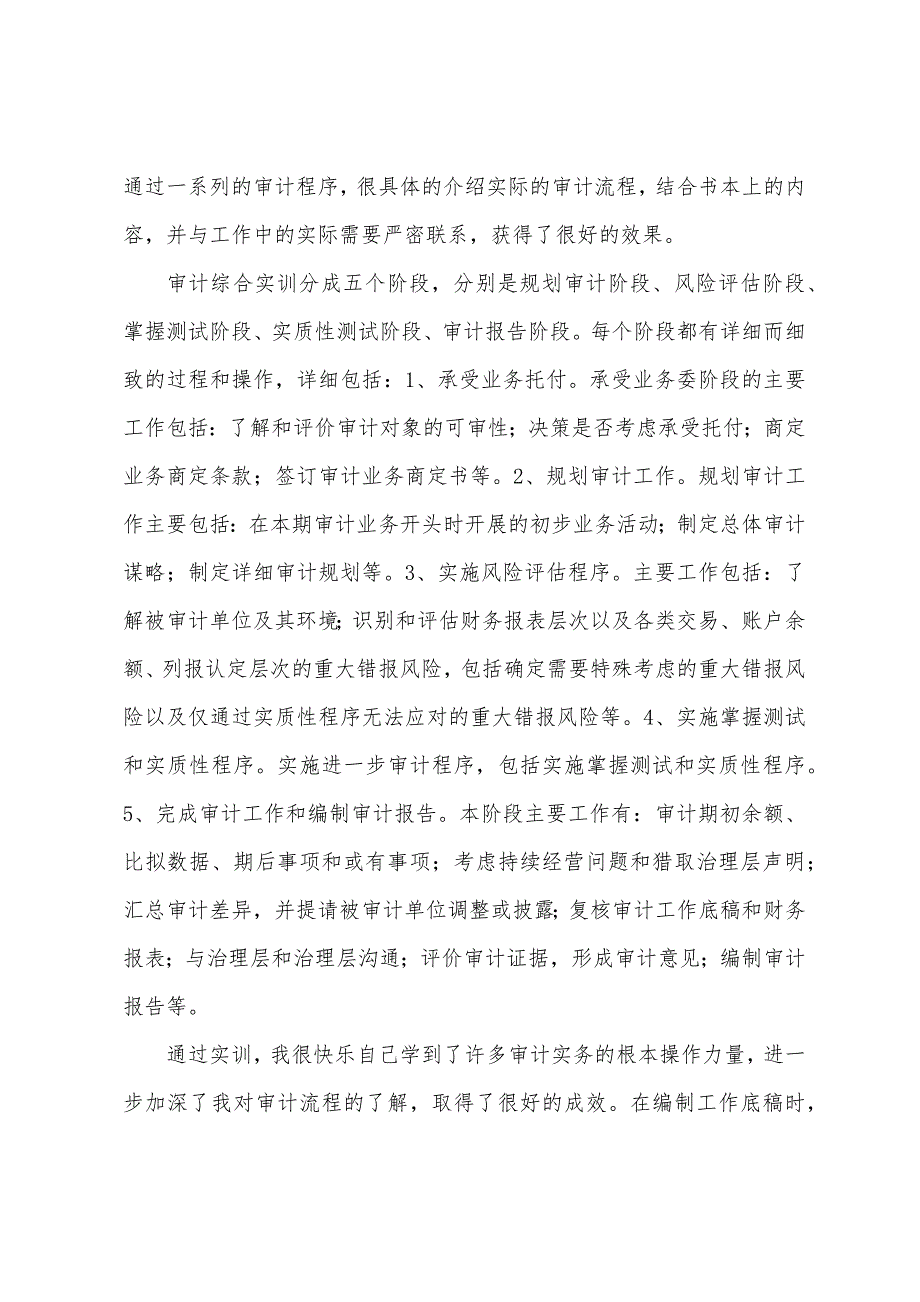 通过一系列的审计程序，很具体的介绍实际的审计流程，结合书本上的内
容，并与工作中的实际需要严密联系，获得了很好的效果。
审计综合实训分成五个阶段，分别是规划审计阶段、风险评估阶段、
掌握测试阶段、实质性测试阶段、审计报告阶段。每个阶段都有详细而细
致的过程和操作，详细包括：1、承受业务托付。承受业务委阶段的主要
工作包括：了解和评价审计对象的可审性；决策是否考虑承受托付；商定
业务商定条款；签订审计业务商定书等。2、规划审计工作。规划审计工
作主要包括：在本期审计业务开头时开展的初步业务活动；制定总体审计
谋略；制定详细审计规划等。3、实施风险评估程序。主要工作包括：了
解被审计单位及其环境；识别和评估财务报表层次以及各类交易、账户余
额、列报认定层次的重大错报风险，包括确定需要特殊考虑的重大错报风
险以及仅通过实质性程序无法应对的重大错报风险等。4、实施掌握测试
和实质性程序。实施进一步审计程序，包括实施掌握测试和实质性程序。
5、完成审计工作和编制审计报告。本阶段主要工作有：审计期初余额、
比拟数据、期后事项和或有事项；考虑持续经营问题和猎取治理层声明；
汇总审计差异，并提请被审计单位调整或披露；复核审计工作底稿和财务
报表；与治理层和治理层沟通；评价审计证据，形成审计意见；编制审计
报告等。
通过实训，我很快乐自己学到了许多审计实务的根本操作力量，进一
步加深了我对审计流程的了解，取得了很好的成效。在编制工作底稿时，